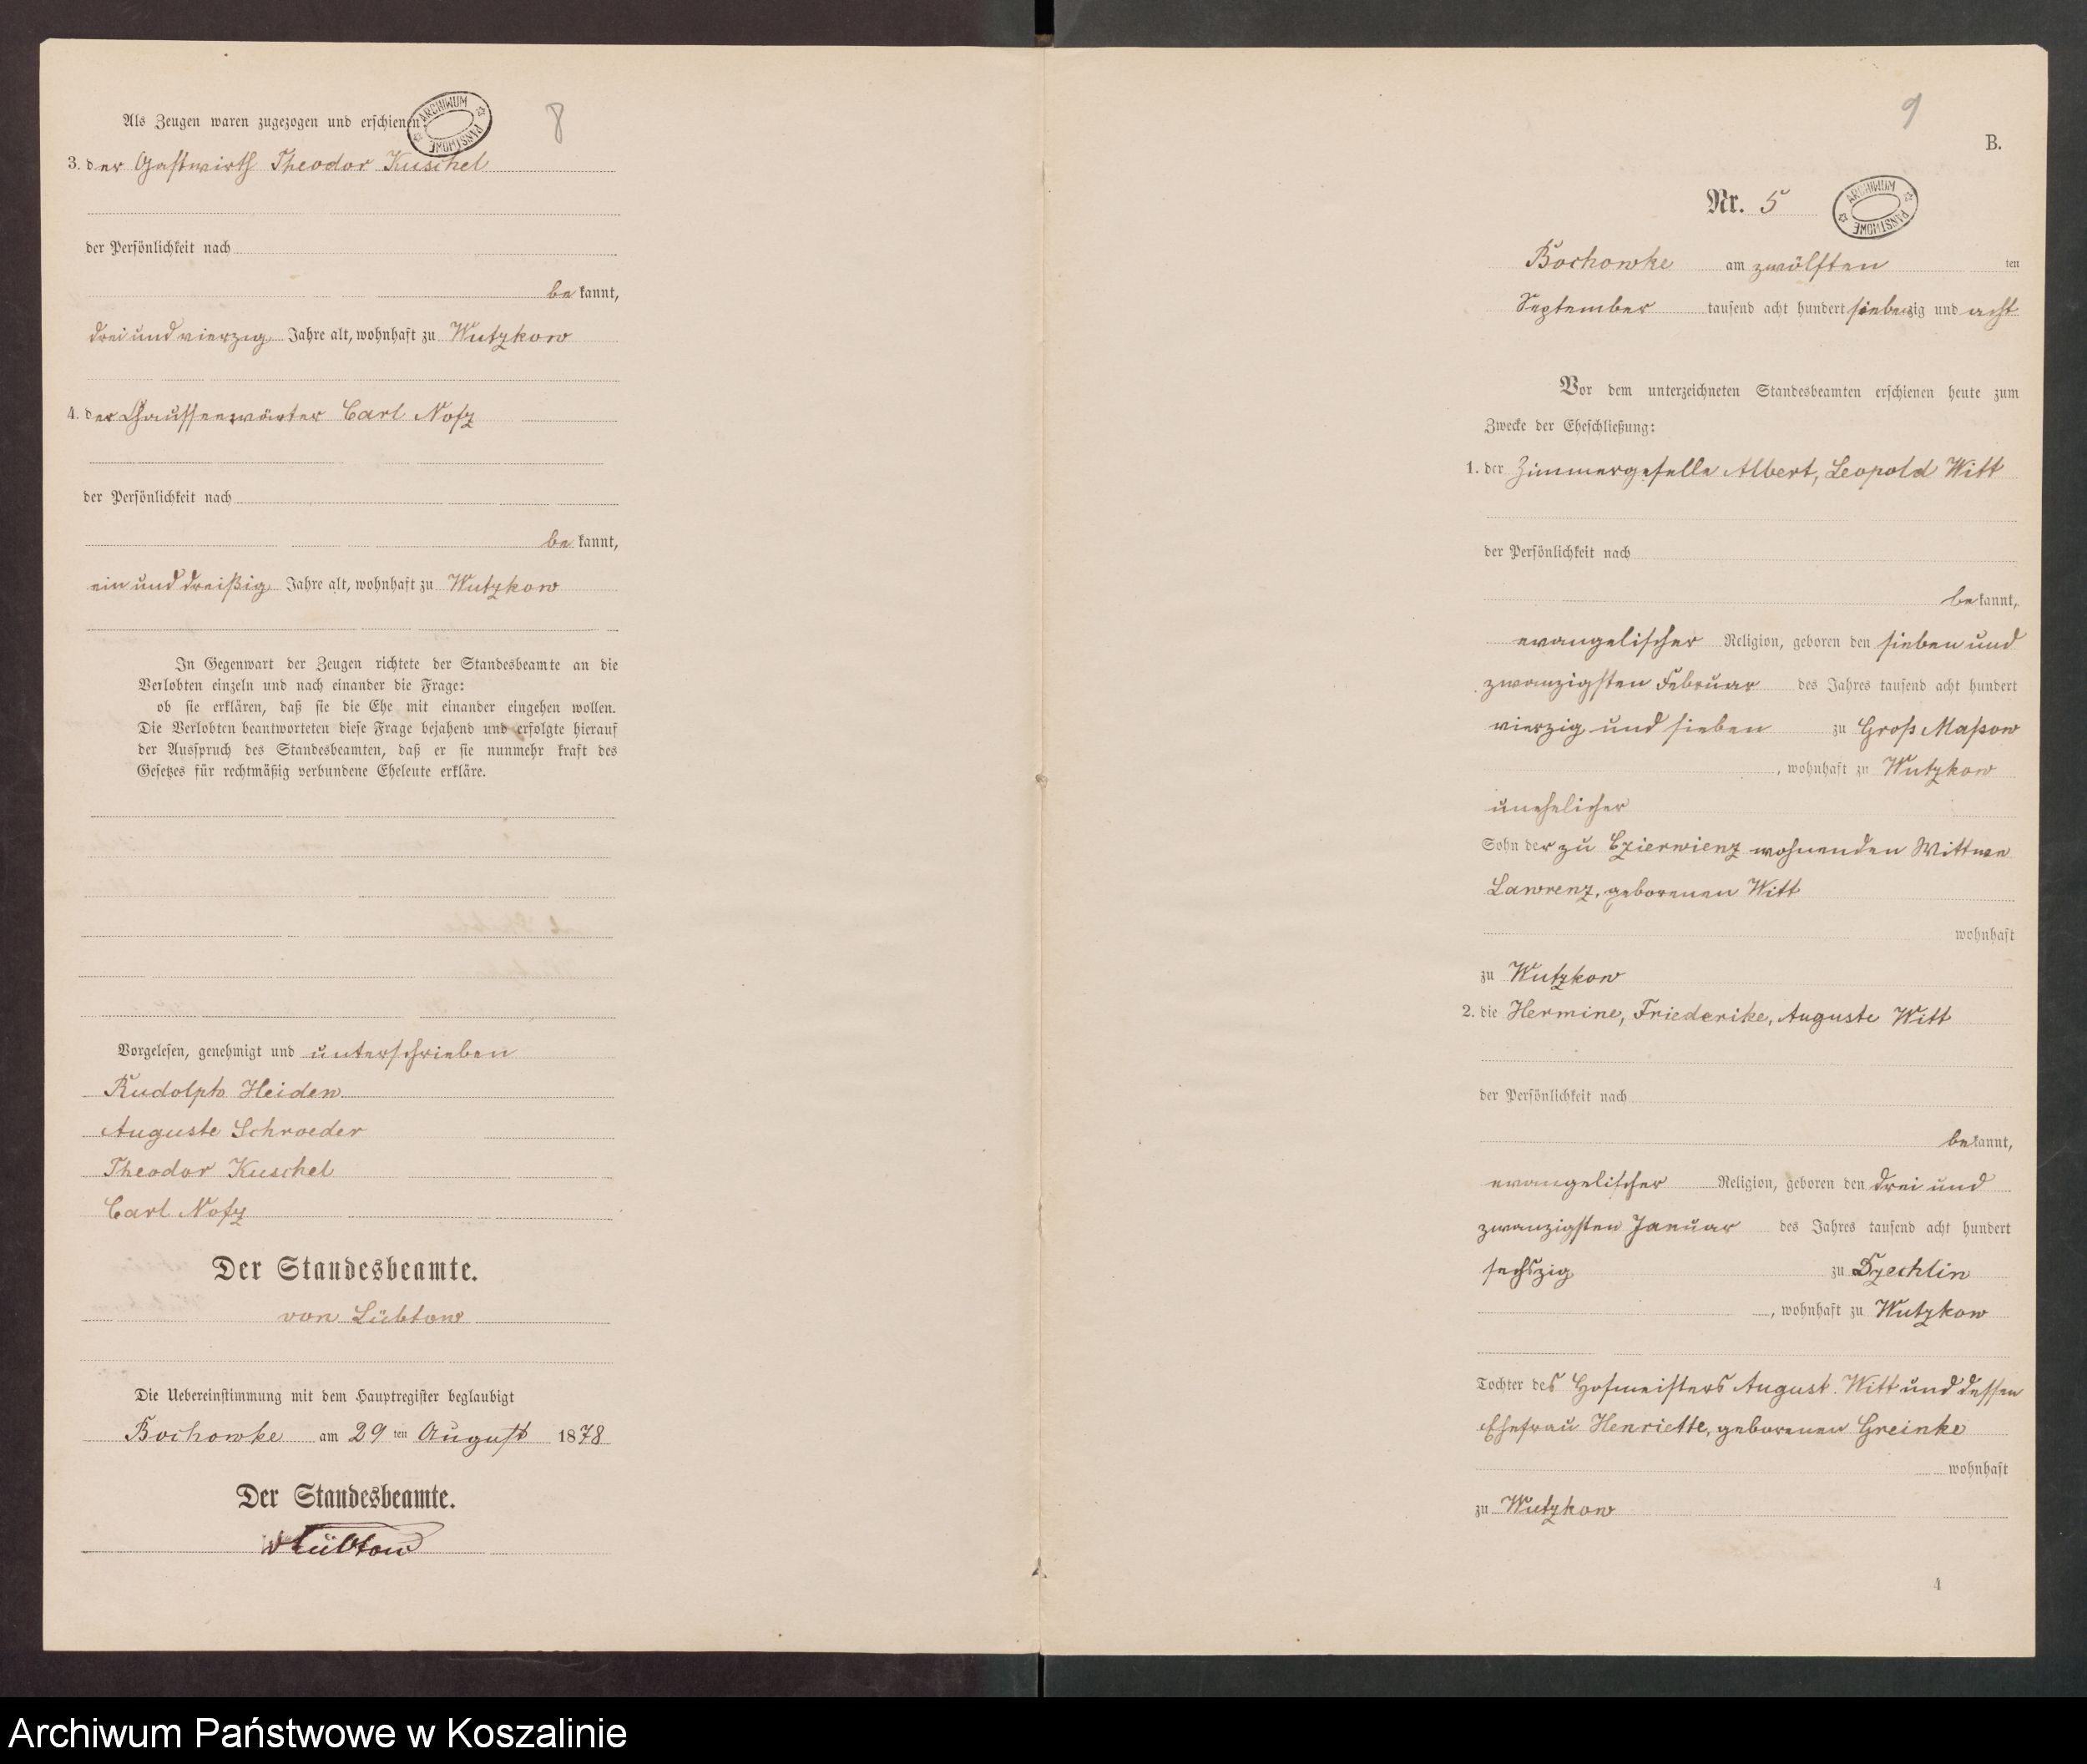 Als Zeugen waren zugezogen und erschienen:
ARCHIWUM PAŃSTWOWE
8
3. der Gastwirth Theodor Kuschel
der Persönlichkeit nach
be kannt,
drei und vierzig Jahre alt, wohnhaft zu Wutzkow
4. der Chausseewärter Carl Notz
der Persönlichkeit nach
be kannt,
ein und dreißig Jahre alt, wohnhaft zu Wutzkow
In Gegenwart der Zeugen richtete der Standesbeamte an die
Verlobten einzeln und nach einander die Frage:
ob sie erklären, daß sie die Ehe mit einander eingehen wollen.
Die Verlobten beantworteten diese Frage bejahend und erfolgte hierauf
der Ausspruch des Standesbeamten, daß er sie nunmehr kraft des
Gesetzes für rechtmäßig verbundene Eheleute erkläre.
Vorgelesen, genehmigt und unterschrieben
Rudolph Heiden
Auguste Schroeder
Theodor Kuschel
Carl Notz
Der Standesbeamte.
von Lübtow
Die Uebereinstimmung mit dem Hauptregister beglaubigt
Bochowke am 29 ten August 1878
Der Standesbeamte.
v Lübtow
9
B.
Nr. 5
ARCHIWUM PAŃSTWOWE
Bochowke am zwölften ten
September tausend acht hundert siebenzig und acht
Vor dem unterzeichneten Standesbeamten erschienen heute zum
Zwecke der Eheschließung:
1. der Zimmergeselle Albert, Leopold Witt
der Persönlichkeit nach
be kannt,
evangelischer Religion, geboren den sieben und
zwanzigsten Februar des Jahres tausend acht hundert
vierzig und sieben zu Groß Maßow
, wohnhaft zu Wutzkow
unehelicher
Sohn der zu Czierwienz wohnenden Wittwe
Lawrenz, geborenen Witt
wohnhaft
zu Wutzkow
2. die Hermine, Friederike, Auguste Witt
der Persönlichkeit nach
be kannt,
evangelischer Religion, geboren den drei und
zwanzigsten Januar des Jahres tausend acht hundert
sechszig zu Dzechlin
, wohnhaft zu Wutzkow
Tochter des Hofmeisters August Witt und dessen
Ehefrau Henriette, geborenen Greinke
wohnhaft
zu Wutzkow
4
Archiwum Państwowe w Koszalinie